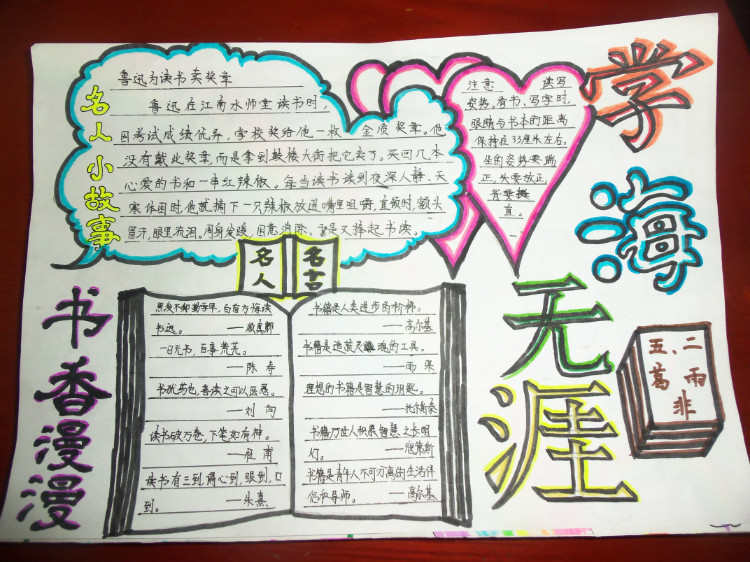 学海
无涯
书香漫漫
名人小故事
鲁迅为读书卖奖章
鲁迅在江南水师堂读书时,
因考试成绩优异,学校奖给他一枚金质奖章。他
没有戴此奖章而是拿到鼓楼大街把它卖了,买回几本
心爱的书和一串红辣椒。每当读书读到夜深人静、天
寒体困时,他就摘下一只辣椒放进嘴里咀嚼,直辣时,额头
冒汗,眼里流泪。周身发暖,困意消除,于是又捧起书读。
注意 读写
姿势,看书、写字时,
眼睛与书本的距离
保持在33厘米左右,
坐的姿势要端
正,头要放正,
背要挺
直。
名人
名言
黑发不知勤学早,白首方悔读
书迟。 ——颜真卿
一日无书,百事荒芜。
——陈寿
书犹药也,善读之可以医愚。
——刘向
读书破万卷,下笔如有神。
——杜甫
读书有三到,谓心到,眼到,口
到。 ——朱熹
书籍是人类进步的阶梯。
——高尔基
书籍是造就灵魂的工具。
——雨果
理想的书籍是智慧的钥匙。
——托尔斯泰
书籍乃世人积累智慧之长明
灯。
书籍是青年人不可分离的生活伴
侣和导师。 ——高尔基
五、二
葛雨
非